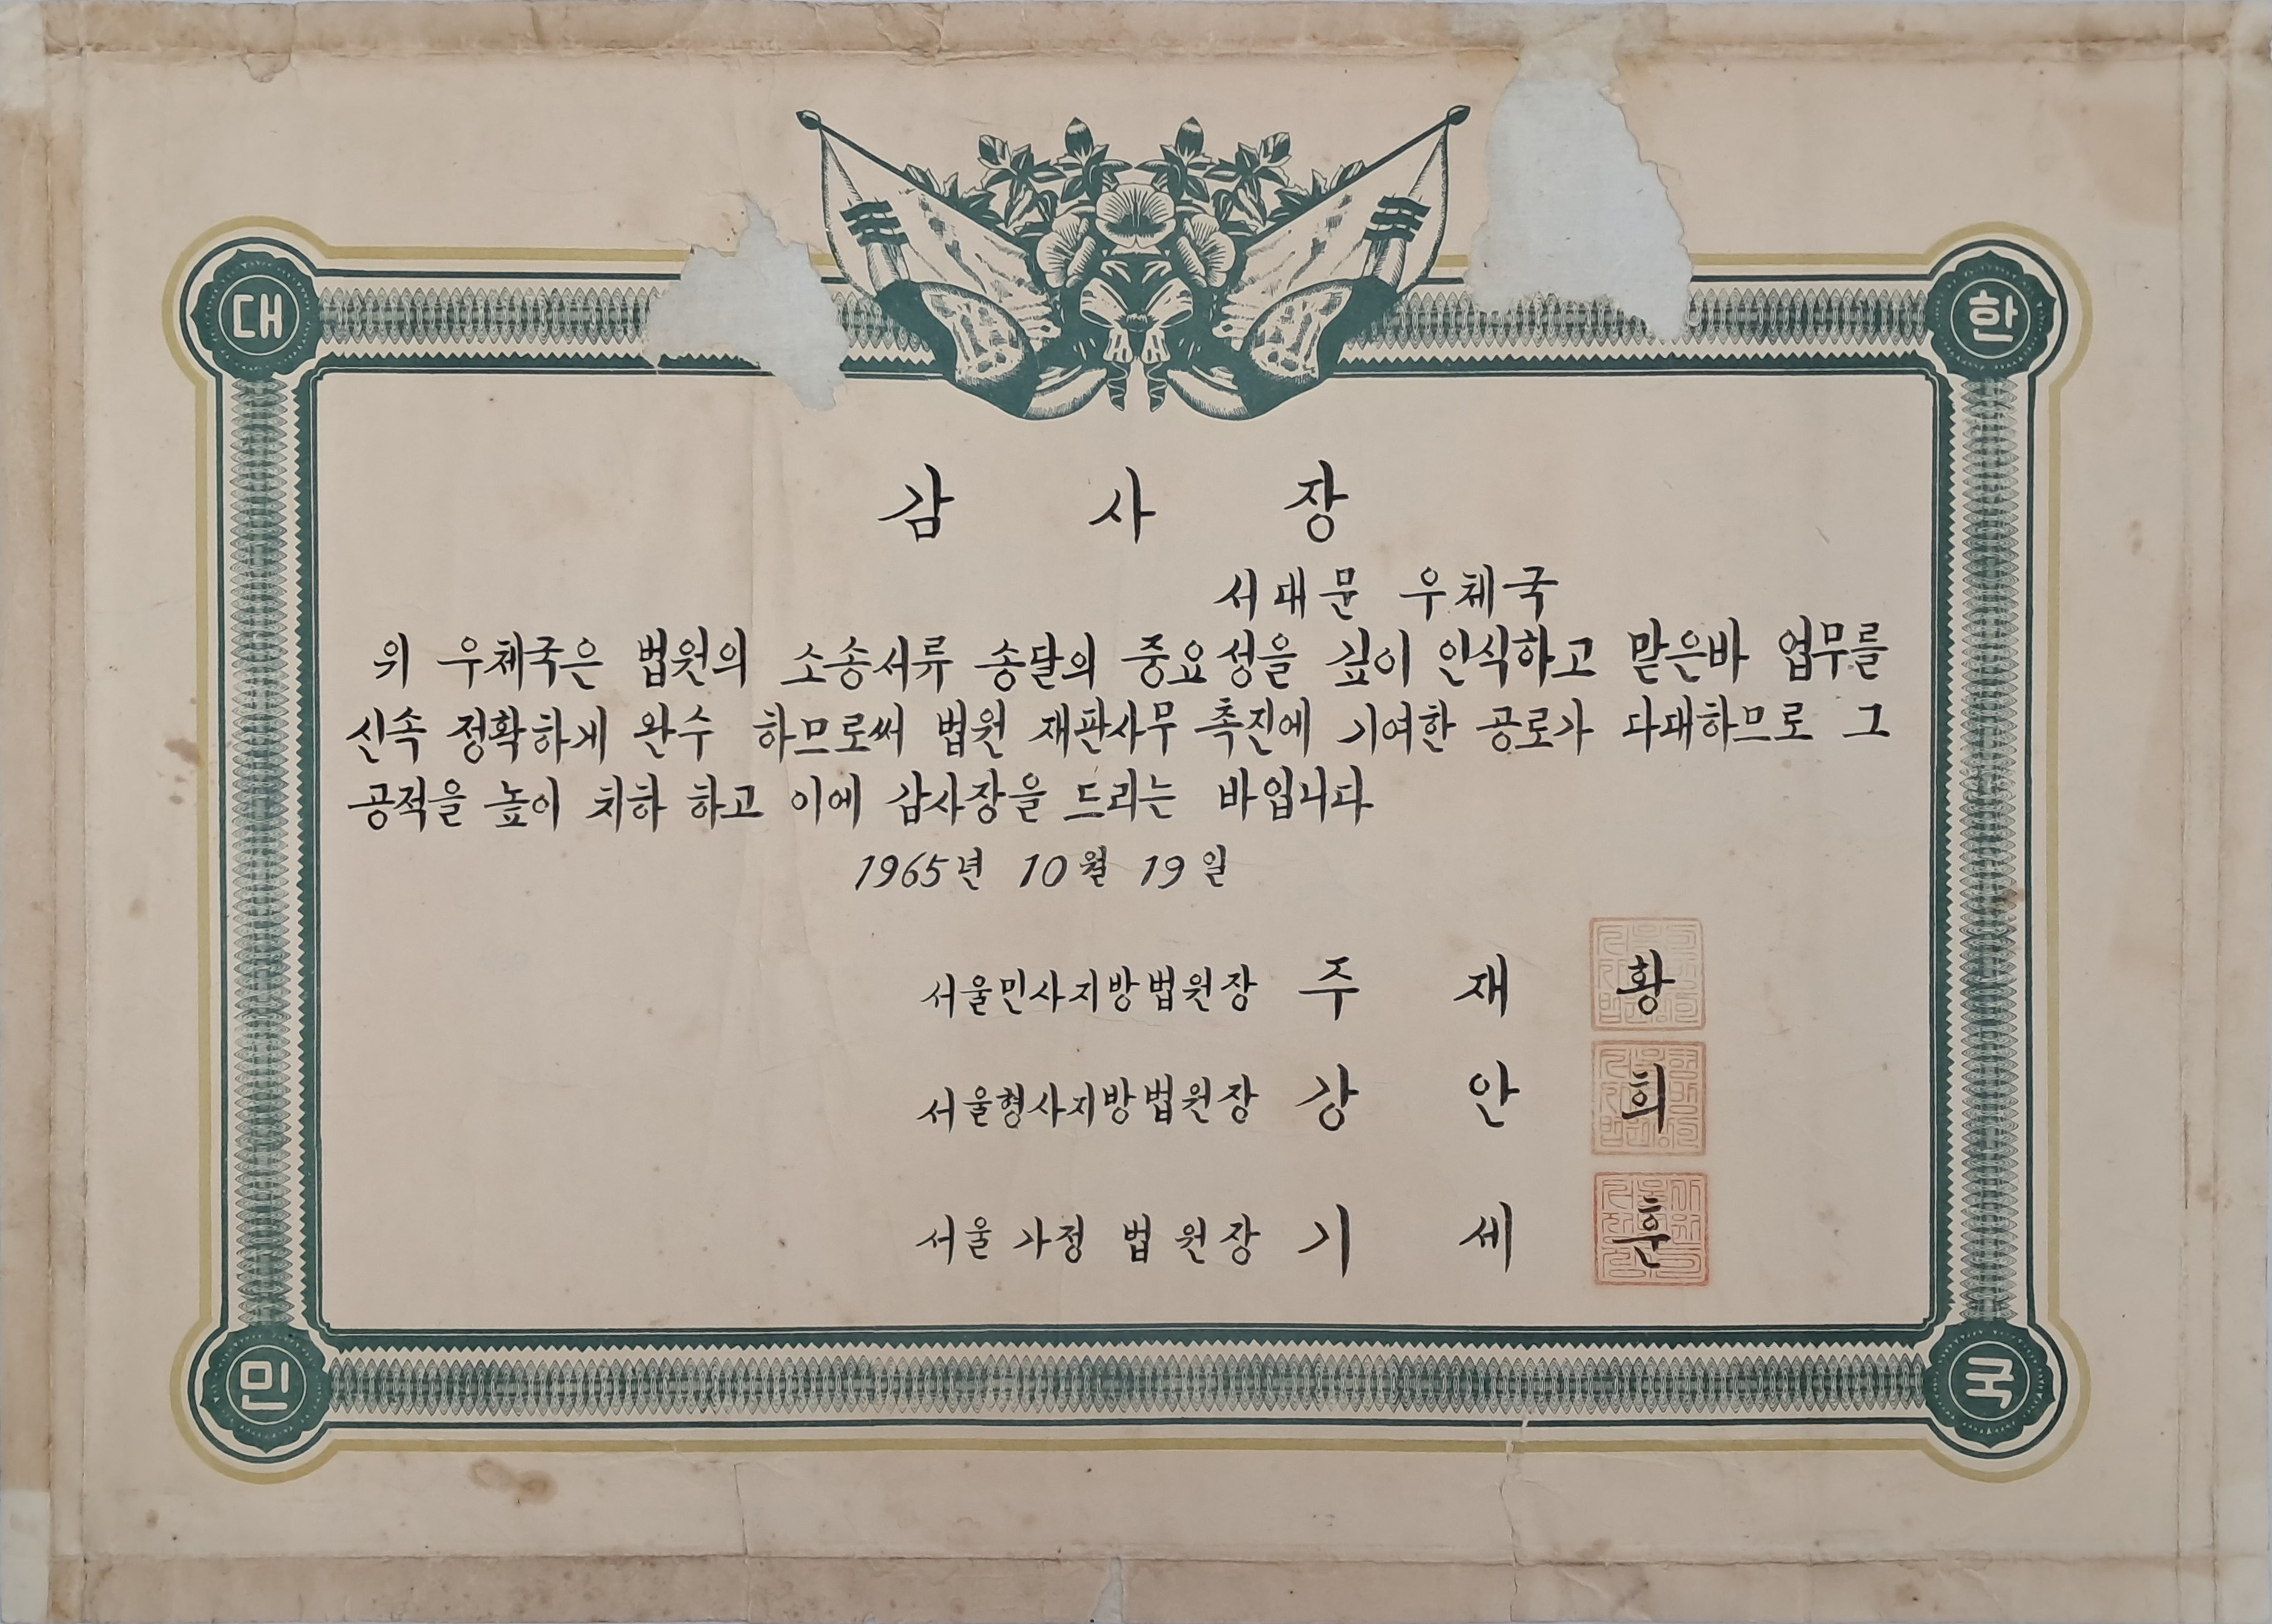 대 한
감 사 장
서대문 우체국
위 우체국은 법원의 소송서류 송달의 중요성을 깊이 인식하고 맡은바 업무를
신속 정확하게 완수 하므로써 법원 재판사무 촉진에 기여한 공로가 다대하므로 그
공적을 높이 치하 하고 이에 감사장을 드리는 바입니다
1965년 10월 19일
서울민사지방법원장 주 재 황
서울형사지방법원장 강 안 희
서울 가정 법 원장 기 세 훈
민 국